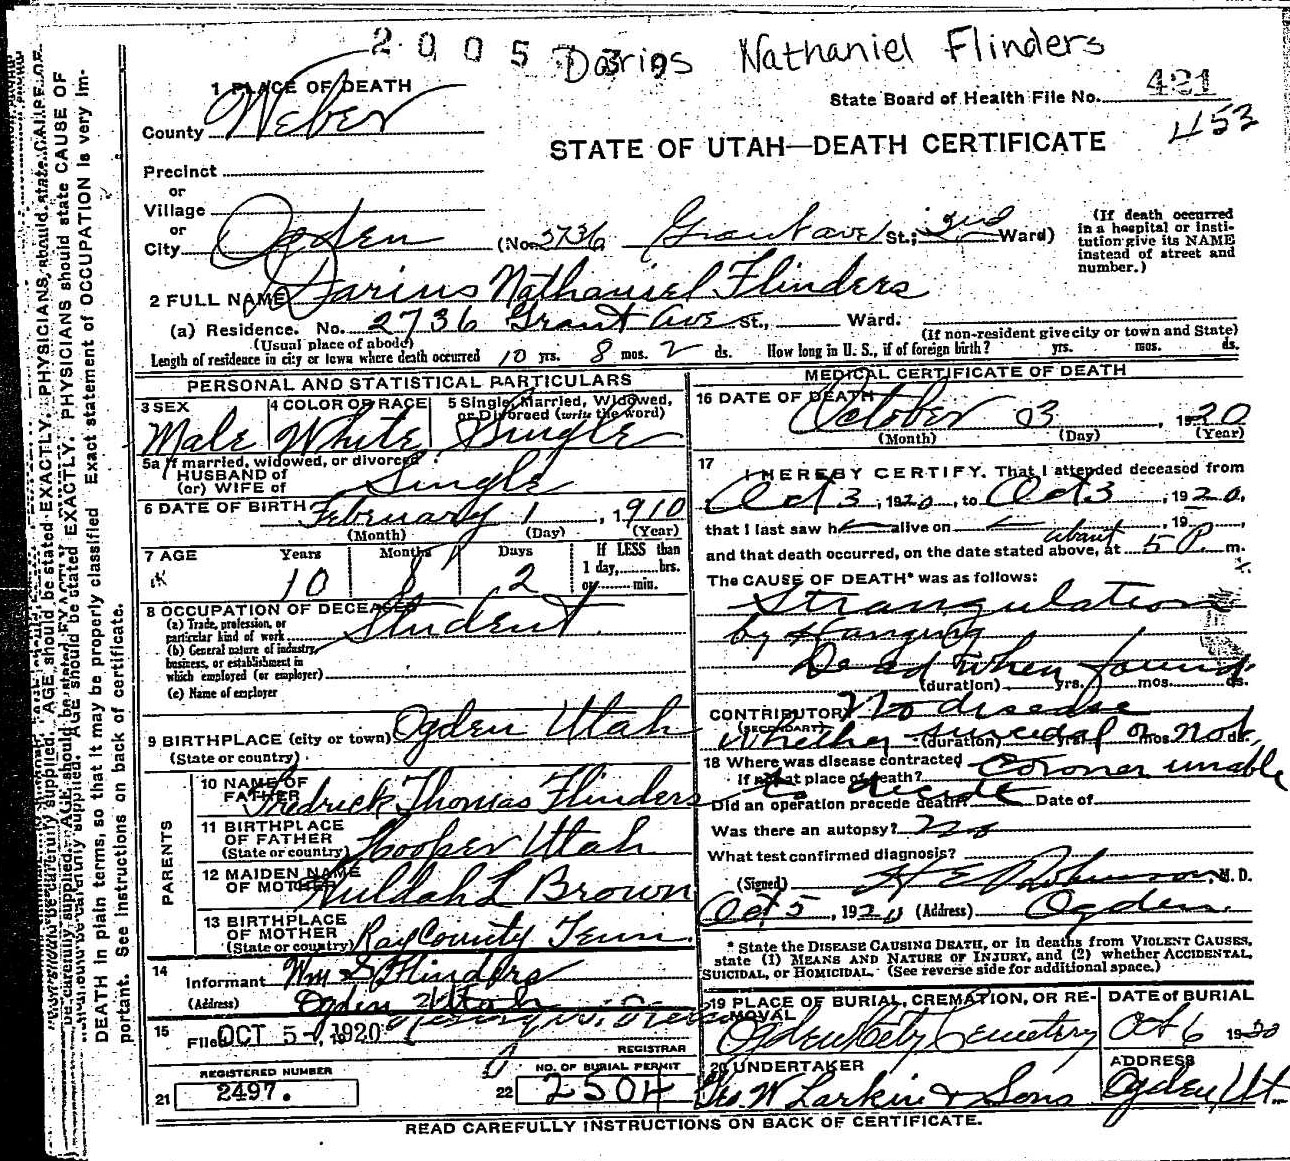 2 0 0 5 5 Darius Nathaniel Flinders
State Board of Health File No. 421
453
STATE OF UTAH—DEATH CERTIFICATE
1 PLACE OF DEATH
County Weber
Precinct
or
Village
or
City Ogden (No. 2736 Grant ave St.; 2nd Ward)
(If death occurred in a hospital or insti-
tution give its NAME instead of street and number.)
2 FULL NAME Darius Nathaniel Flinders
(a) Residence. No. 2736 Grant Ave St., Ward.
(Usual place of abode) (If non-resident give city or town and State)
Length of residence in city or town where death occurred 10 yrs. 8 mos. 2 ds. How long in U. S., if of foreign birth? yrs. mos. ds.
PERSONAL AND STATISTICAL PARTICULARS
3 SEX Male
4 COLOR OR RACE White
5 Single, Married, Widowed, or Divorced (write the word) Single
5a If married, widowed, or divorced
HUSBAND of
(or) WIFE of Single
6 DATE OF BIRTH February 1, 1910
(Month) (Day) (Year)
7 AGE Years 10 Months 8 Days 2 If LESS than 1 day, hrs. or min.
8 OCCUPATION OF DECEASED
(a) Trade, profession, or particular kind of work Student
(b) General nature of industry, business, or establishment in which employed (or employer)
(c) Name of employer
9 BIRTHPLACE (city or town) Ogden Utah
(State or country)
PARENTS
10 NAME OF FATHER Fredrick Thomas Flinders
11 BIRTHPLACE OF FATHER (State or country) Hooper Utah
12 MAIDEN NAME OF MOTHER Huldah L Brown
13 BIRTHPLACE OF MOTHER (State or country) Ray County Tenn
14 Informant Wm S Flinders
(Address) Ogden Utah
15 Filed OCT 5- 1920
REGISTRAR
REGISTERED NUMBER
21 2497.
NO. OF BURIAL PERMIT
22 2504
MEDICAL CERTIFICATE OF DEATH
16 DATE OF DEATH October 3, 1920
(Month) (Day) (Year)
17 I HEREBY CERTIFY. That I attended deceased from
Oct 3, 1920, to Oct 3, 1920,
that I last saw h alive on , 19 ,
and that death occurred, on the date stated above, at about 5 P. m.
The CAUSE OF DEATH* was as follows:
Strangulation
by Hanging
Dead when found
(duration) yrs. mos. ds.
CONTRIBUTORY No disease
(SECONDARY) Whether suicidal or not
(duration) yrs. mos. ds.
18 Where was disease contracted Coroner unable
If not at place of death? to decide
Did an operation precede death? Date of
Was there an autopsy? no
What test confirmed diagnosis?
(Signed) , M. D.
Oct 5, 1920 (Address) Ogden.
* State the DISEASE CAUSING DEATH, or in deaths from VIOLENT CAUSES,
state (1) MEANS AND NATURE OF INJURY, and (2) whether ACCIDENTAL,
SUICIDAL, or HOMICIDAL. (See reverse side for additional space.)
19 PLACE OF BURIAL, CREMATION, OR RE-
MOVAL Ogden City Cemetery
DATE of BURIAL Oct 6 1920
20 UNDERTAKER Geo. W Larkin & Sons
ADDRESS Ogden, Ut.
READ CAREFULLY INSTRUCTIONS ON BACK OF CERTIFICATE.
AGE should be stated EXACTLY. PHYSICIANS should state CAUSE OF
DEATH in plain terms, so that it may be properly classified. Exact statement of OCCUPATION is very im-
portant. See instructions on back of certificate.